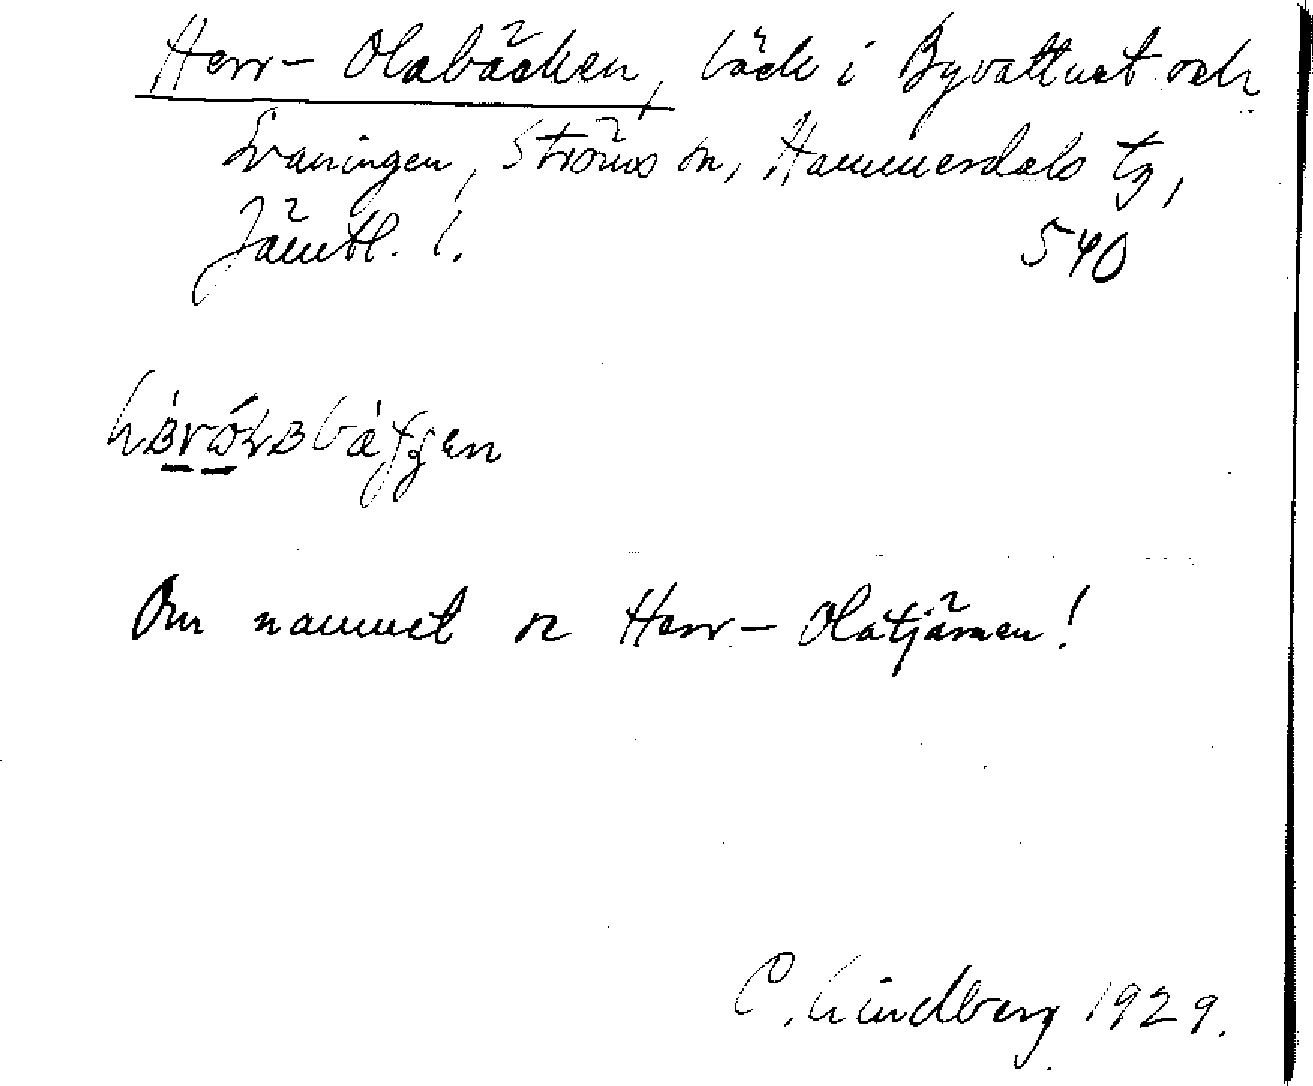 Herr-Olabäcken, bäck i Byvattnet och
Svaningen, Ströms sn, Hammerdals tg,
Jämtl. l. 540
Om namnet se Herr-Olatjärnen!
C. Lindberg 1929.